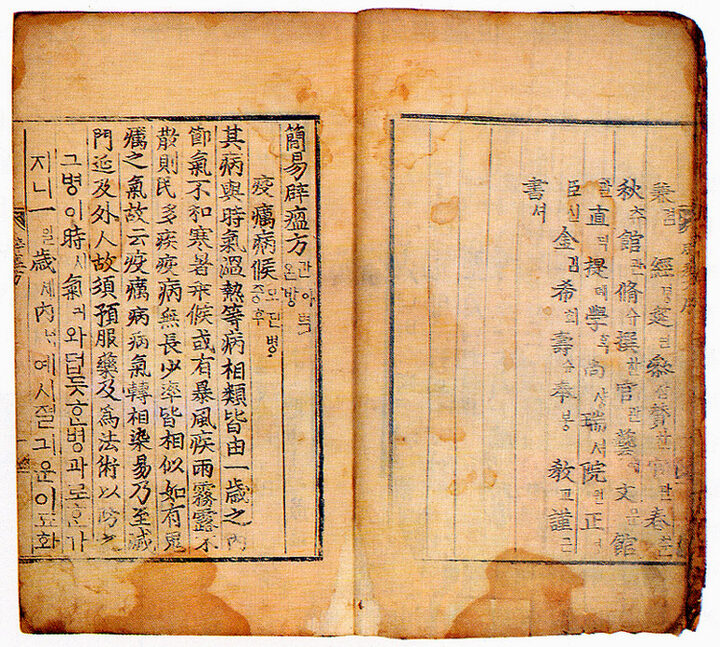 兼겸經경筵연參참贊찬官관春츈
秋츄館관脩슈撰찬官관藝예文문館관
直딕提뎨學ᄒᆞᆨ尙샹瑞셔院원正
臣신金김希희壽슈奉봉敎교謹근
書셔
簡易辟瘟方간이벽온방
疫癘病候모딘병증후
其病與時氣溫熱等病相類皆由一歲之內
節氣不和寒暑乖候或有暴風疾雨霧露不
散則民多疾疫病無長少率皆相似如有鬼
癘之氣故云疫癘病病氣轉相染易乃至滅
門延及外人故須預服藥及爲法術以防之
그병이時시氣긔와덥듯ᄒᆞᆫ병과로ᄒᆞᆫ가
지니一일歲셰內ᄂᆡ예시졀긔운이됴화